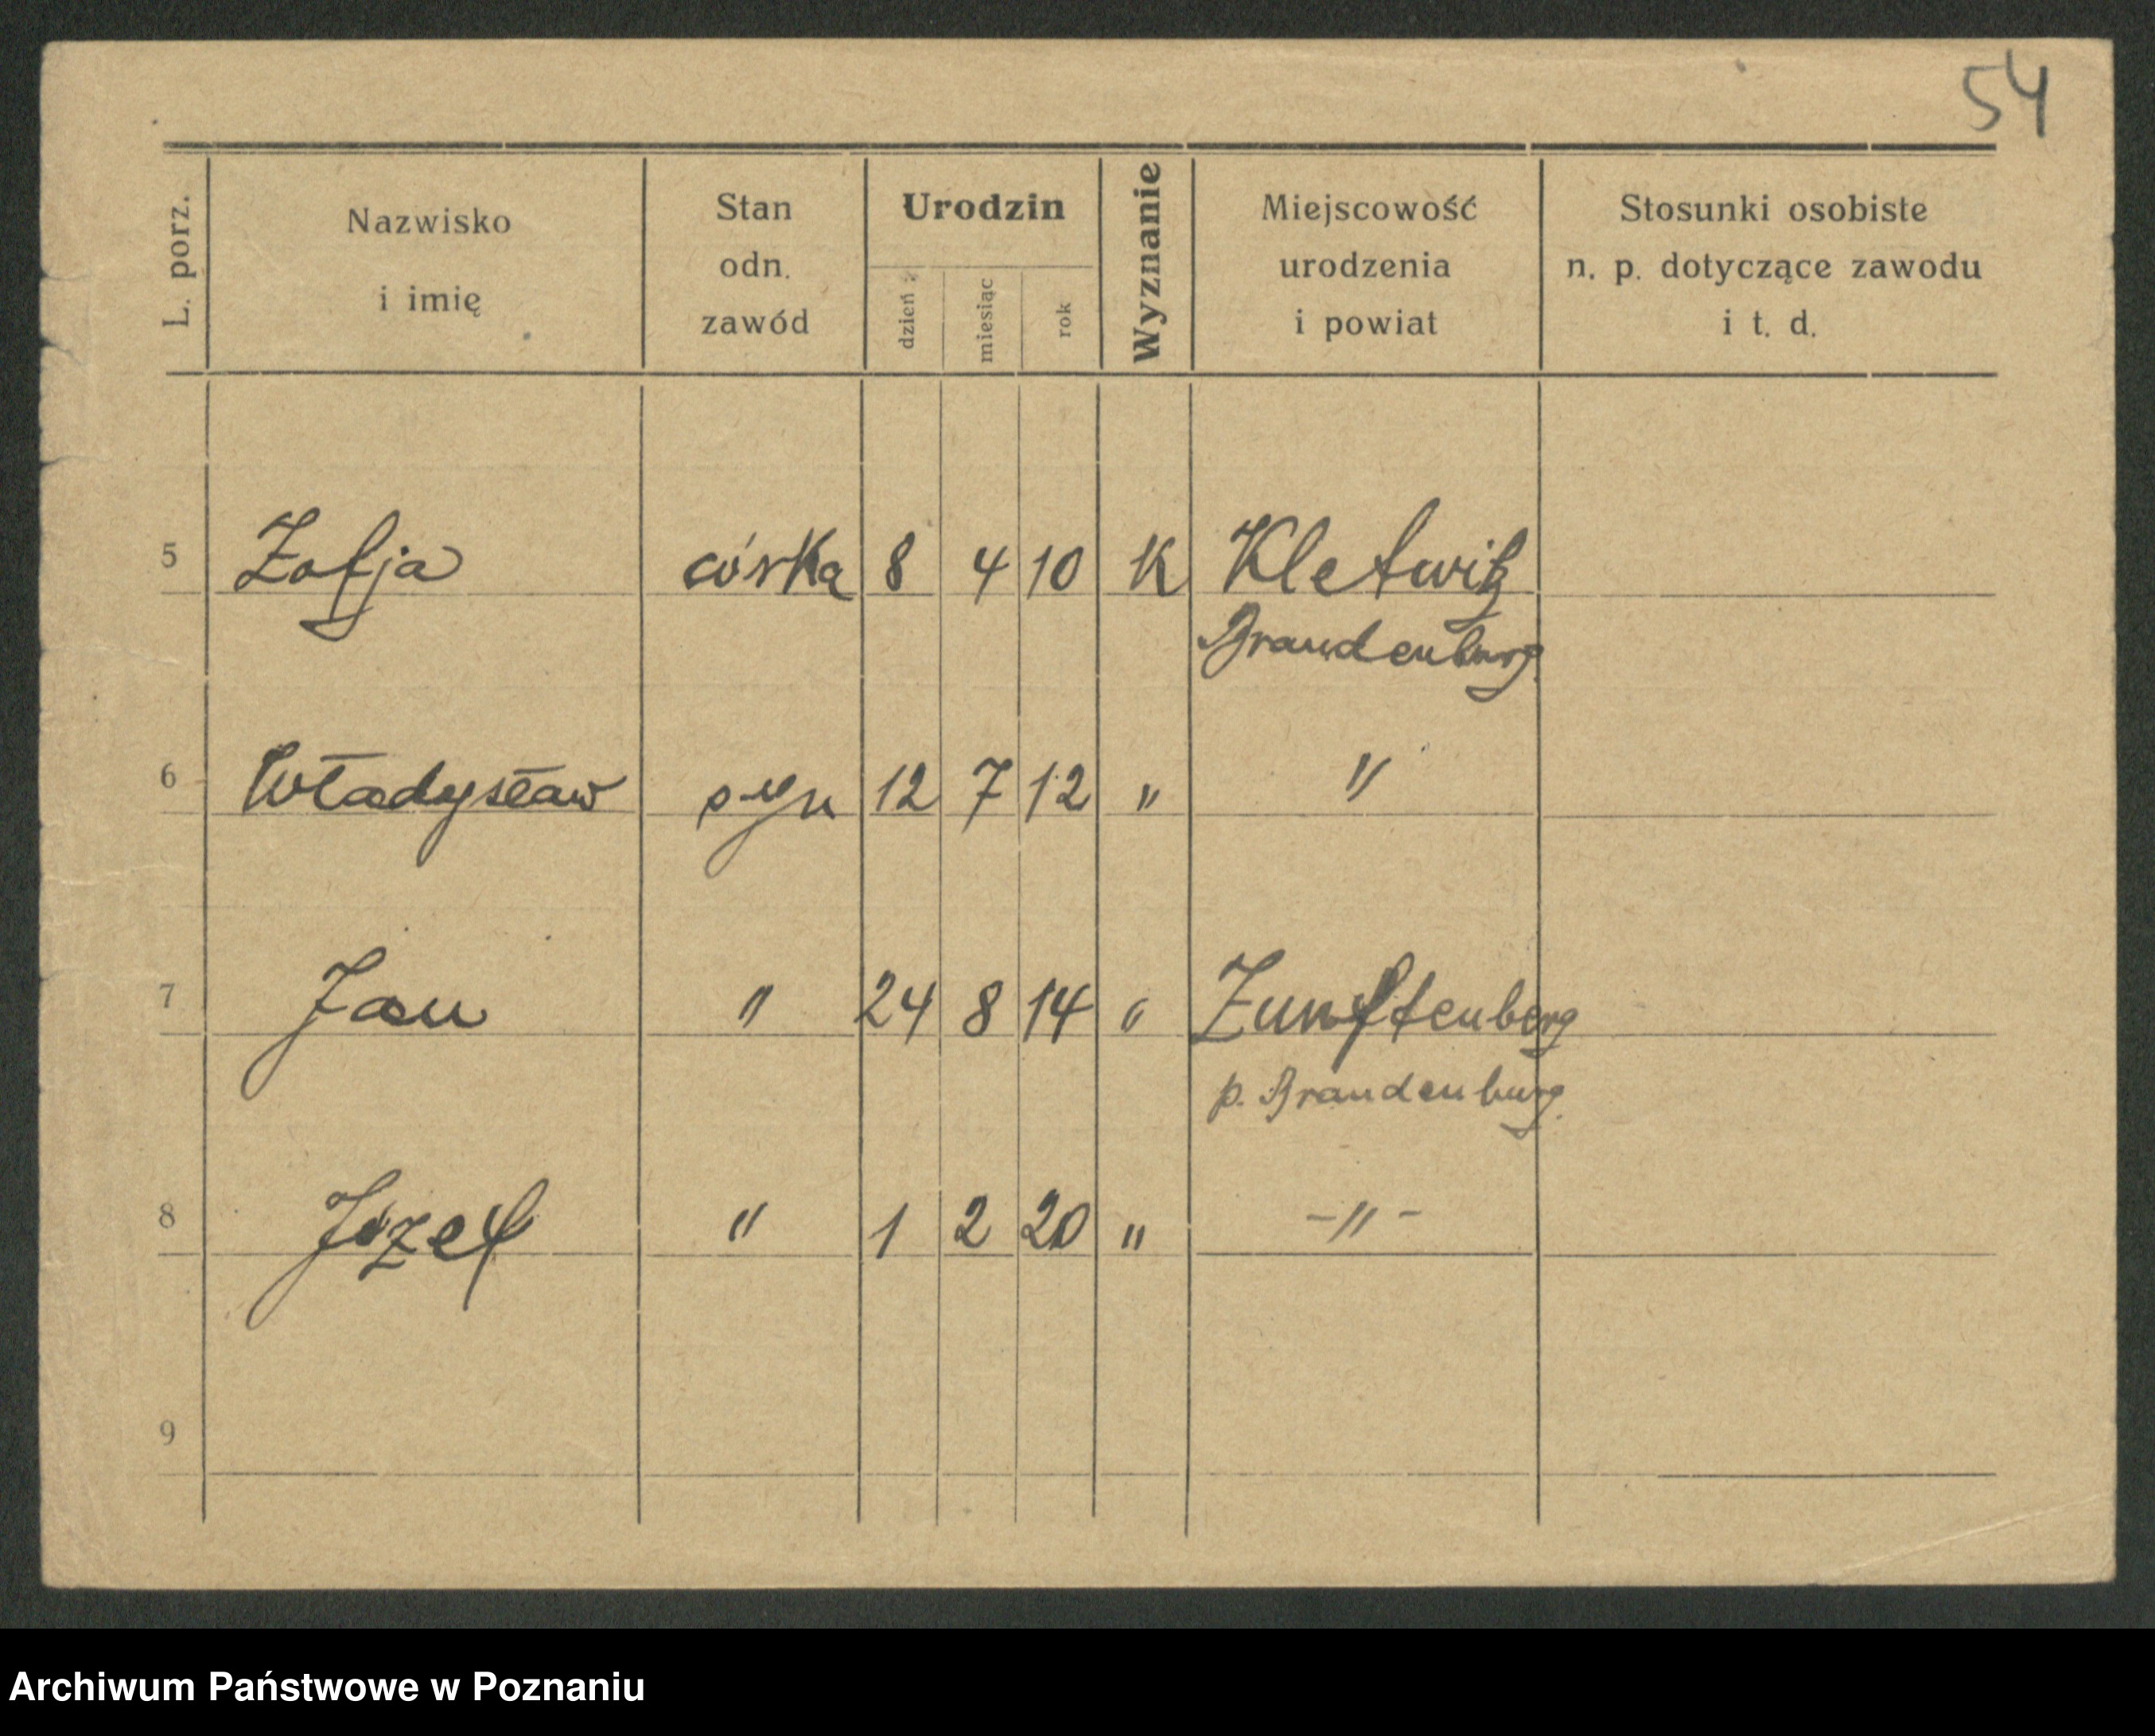 54
L. porz.
Nazwisko
i imię
Stan
odn.
zawód
Urodzin
dzień
miesiąc
rok
Wyznanie
Miejscowość
urodzenia
i powiat
Stosunki osobiste
n. p. dotyczące zawodu
i t. d.
5 Zofja córka 8 4 10 K Kletwitz
Brandenburg
6 Władysław syn 12 7 12 " "
7 Jan " 24 8 14 " Zunftenberg
p. Brandenburg
8 Józef " 1 2 20 " -"-
9
Archiwum Państwowe w Poznaniu